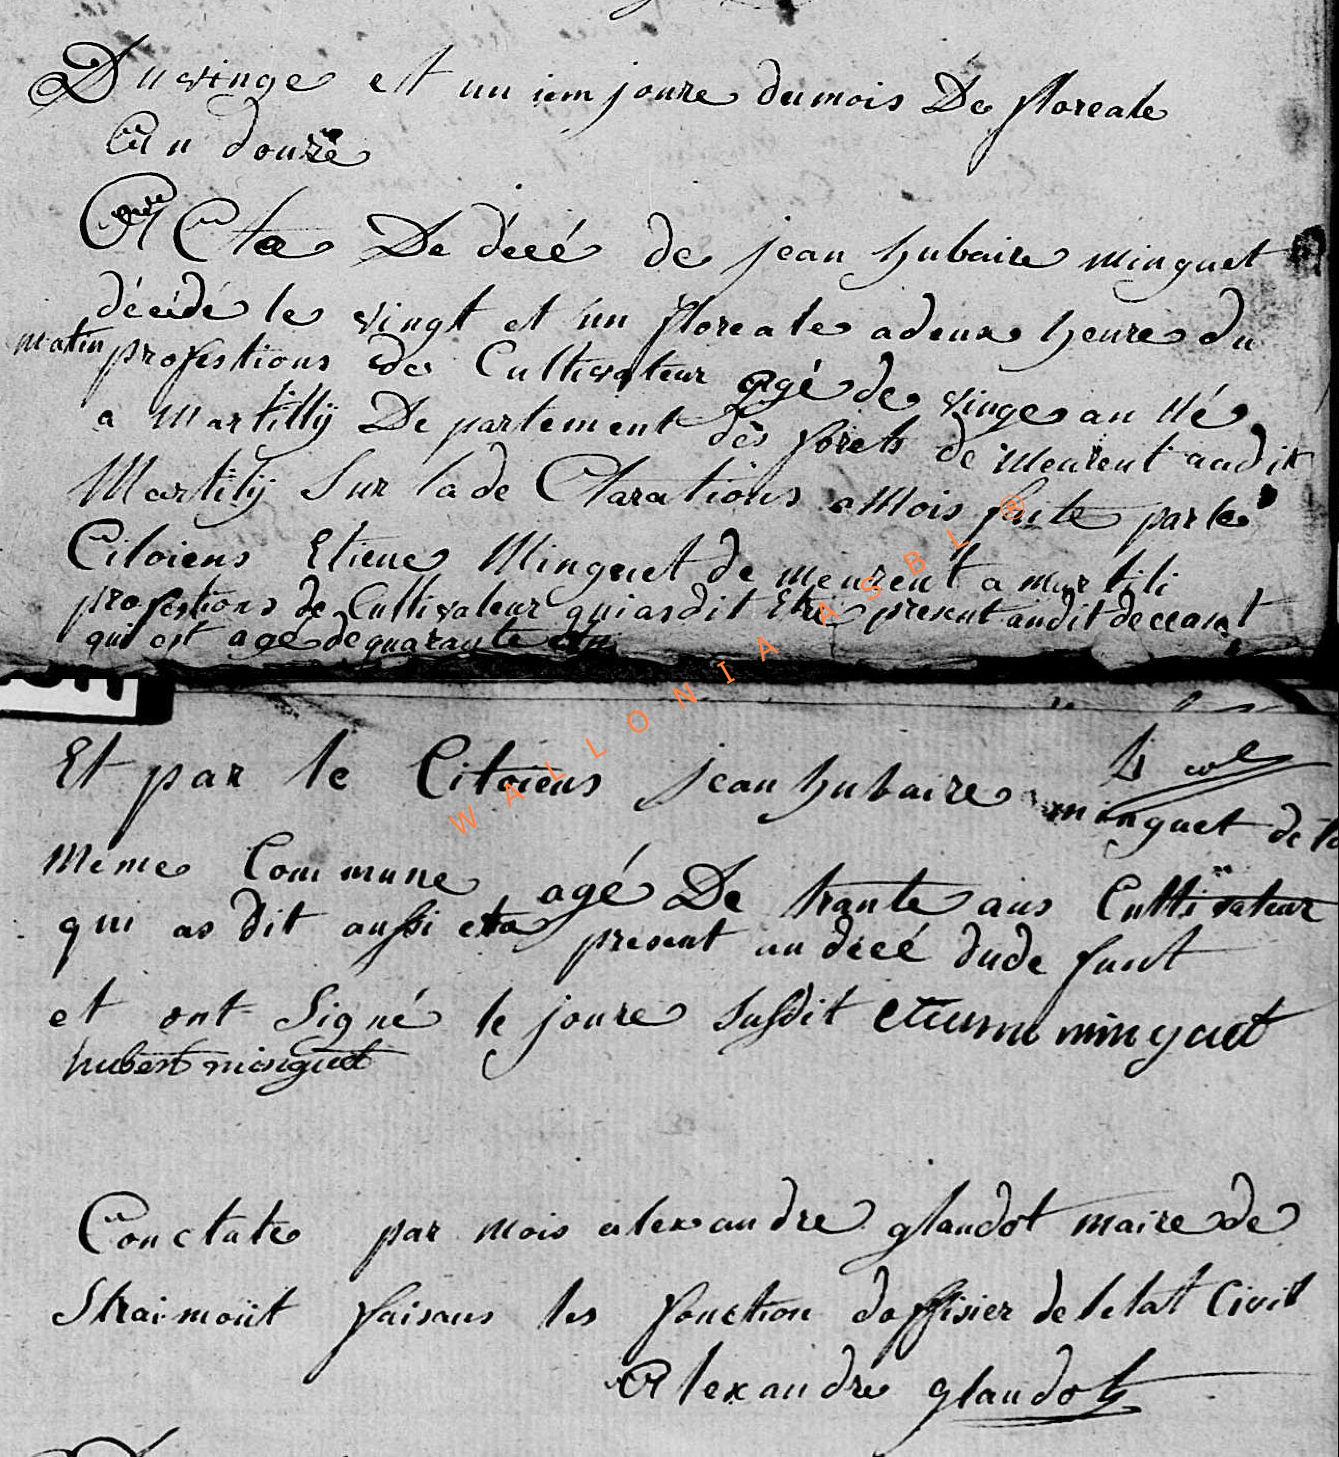 Du vinge est un iem joure du mois De floreale
An douze
Acte De décé de jean hubaire minguet
décédé le vingt et un floreale a deux heure du
matin profestions de Cultivateur agé de vinge an né
a Martilly Departement dès forets de meurent audit
Martilij Sur la de Clarations a Mois faite par le
Citoiens Etiene Minguet de meurent a martili
profestions de Cultivateur qui as dit Etre present audit decea
qui est age de quarante an
4 col
Et par le Citoiens jean hubaire minguet de la
meme Commune agé De trante ans Cultivateur
qui as dit aussi eta present au décé du de funt
et ont Signé le joure Susdit etienne minguet
hubert minguet
Conctate par mois alexandre glaudot maire de
Straimont faisans les fonction doffisier de letat Civil
Alexandre glaudot
WALLONIA ASBL ®